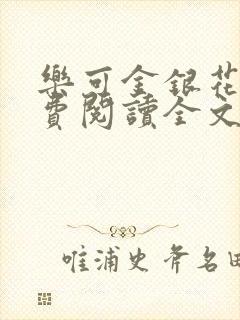 樂可金銀花
費閱讀全文
唯浦史斧名田